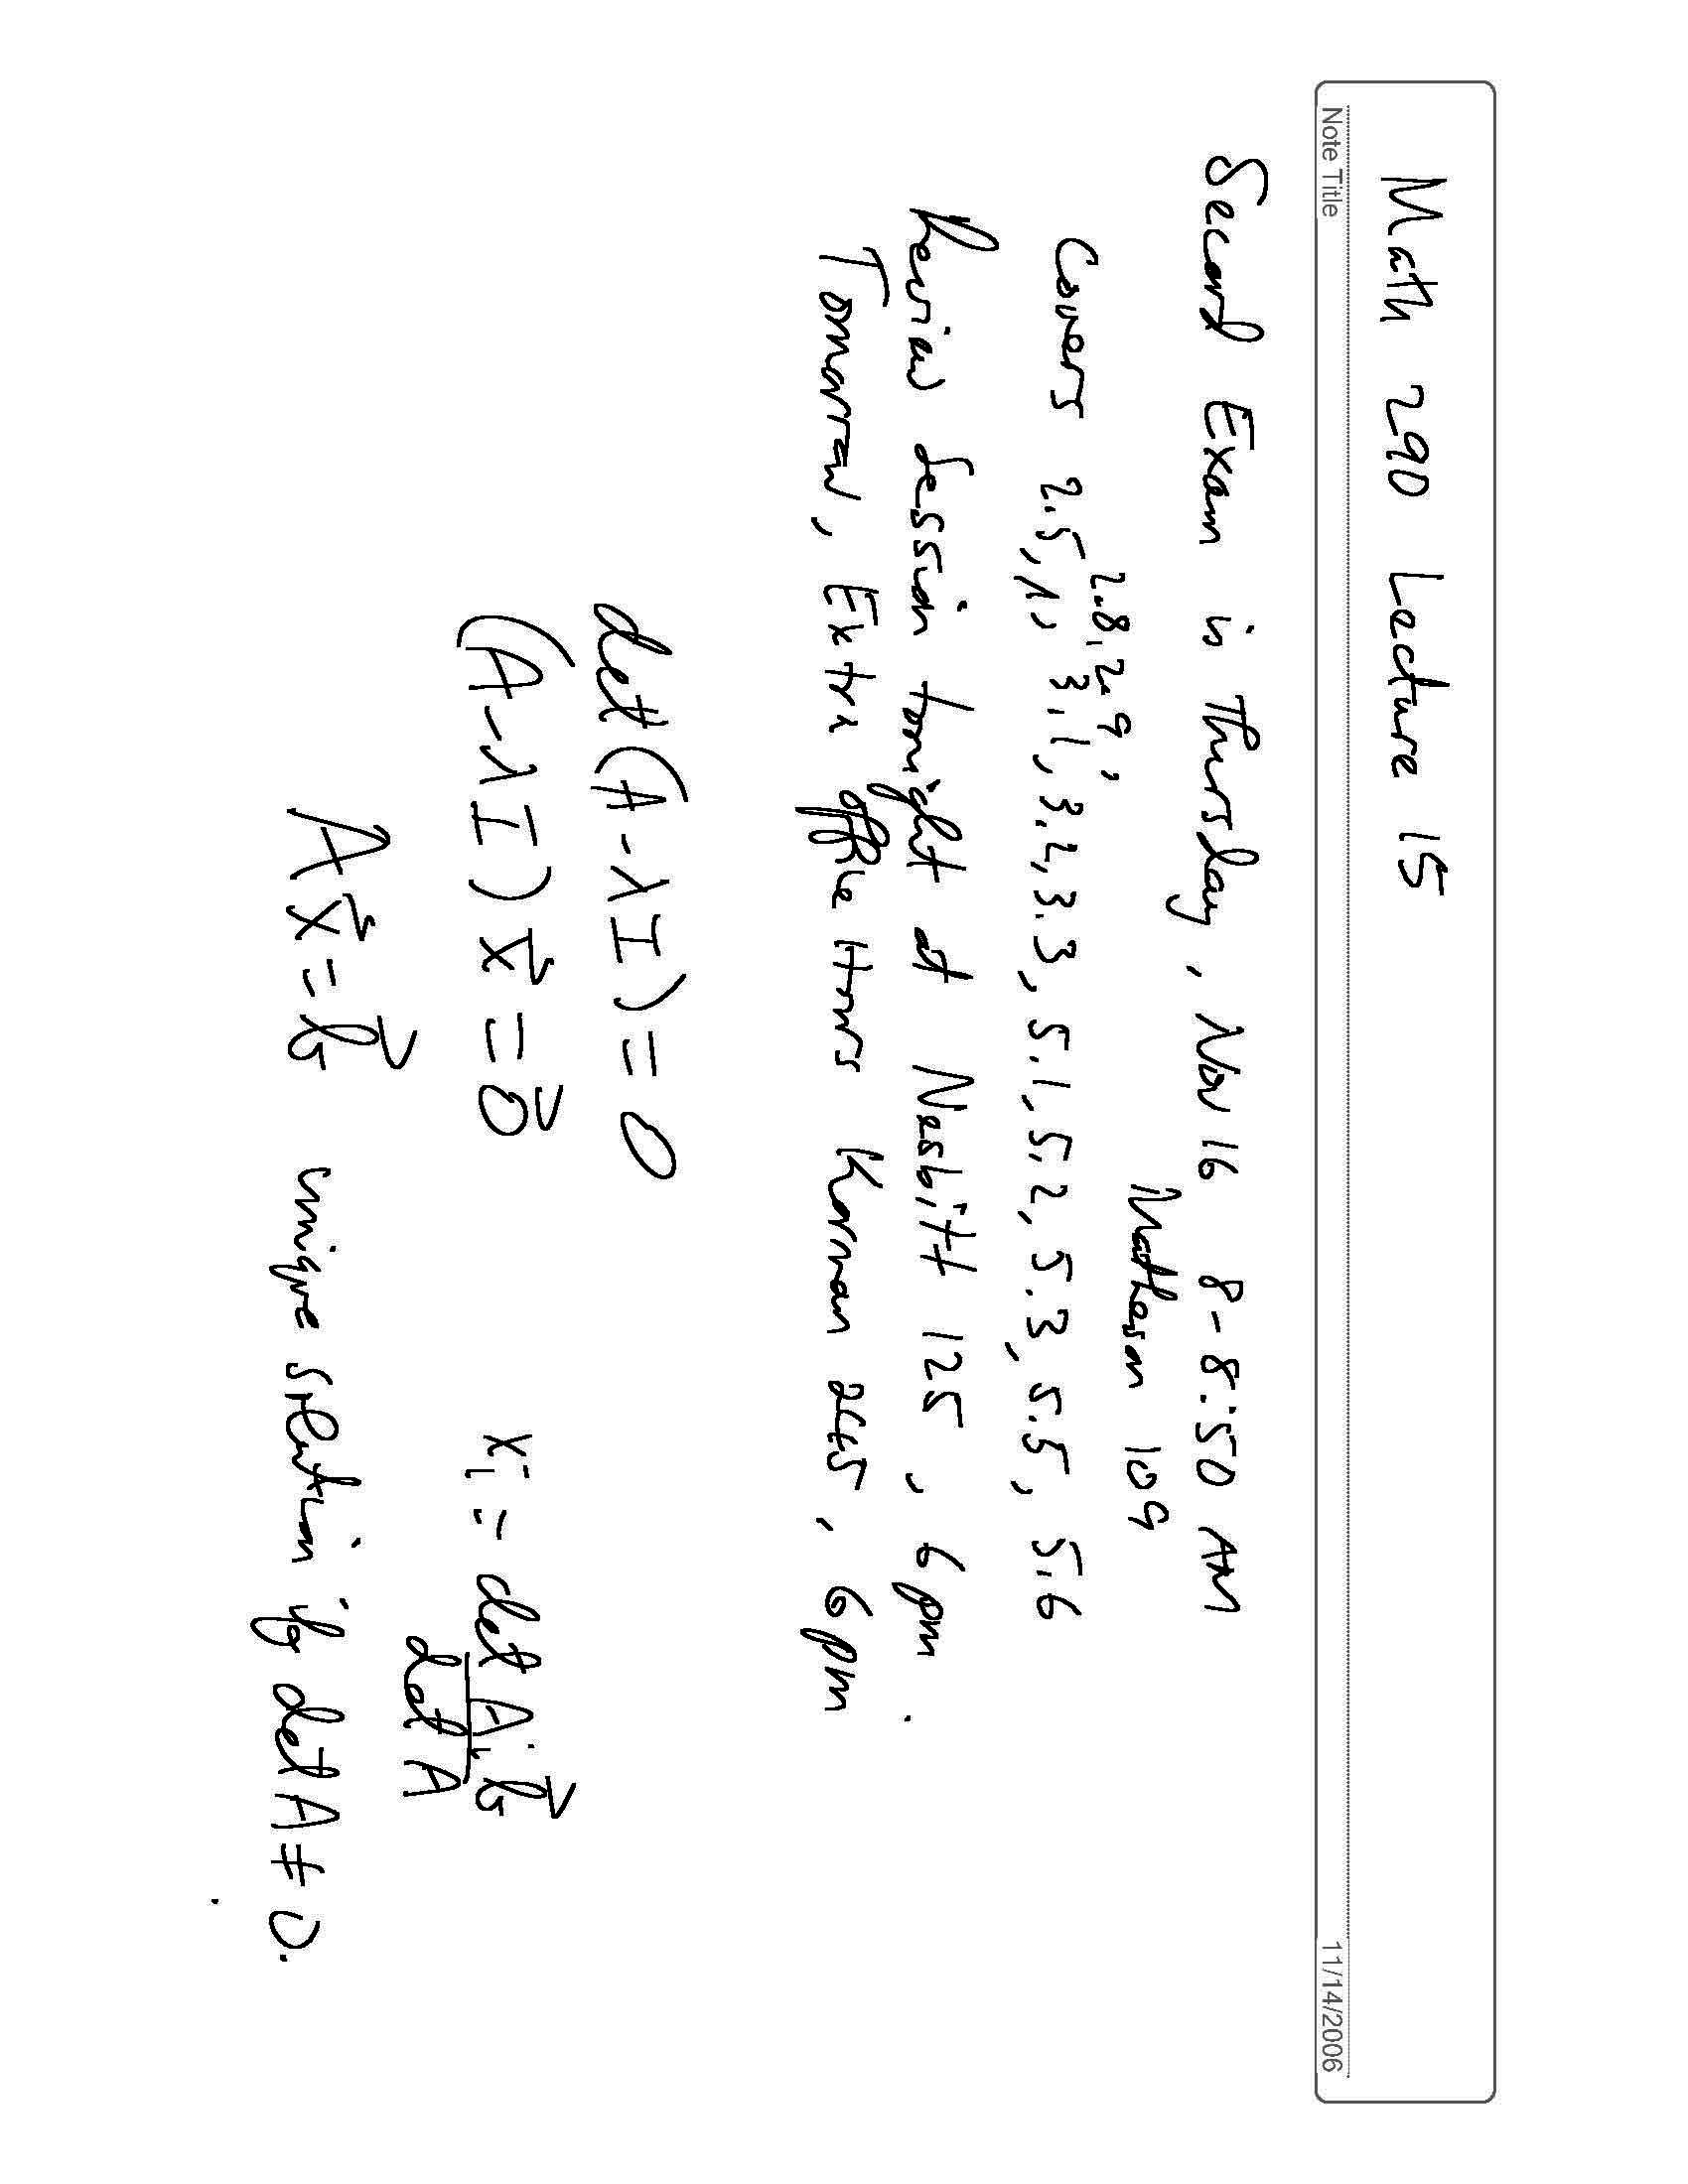 Math 290 Lecture 15
Note Title
11/14/2006
Second Exam is Thursday, Nov 16 8-8:50 AM
Matheson 109
2.8, 2.9,
Covers 2.5, 3.1, 3.2, 3.3, 5.1, 5.2, 5.3, 5.5, 5.6
Review Session tonight at Nesbitt 125, 6pm.
Tomorrow, Extra Office Hours Korman 245, 6pm
det(A-λI) = 0
(A-λI)x⃗ = 0⃗
xᵢ = det Aᵢ b⃗
det A
Ax⃗ = b⃗ unique solution if det A ≠ 0.